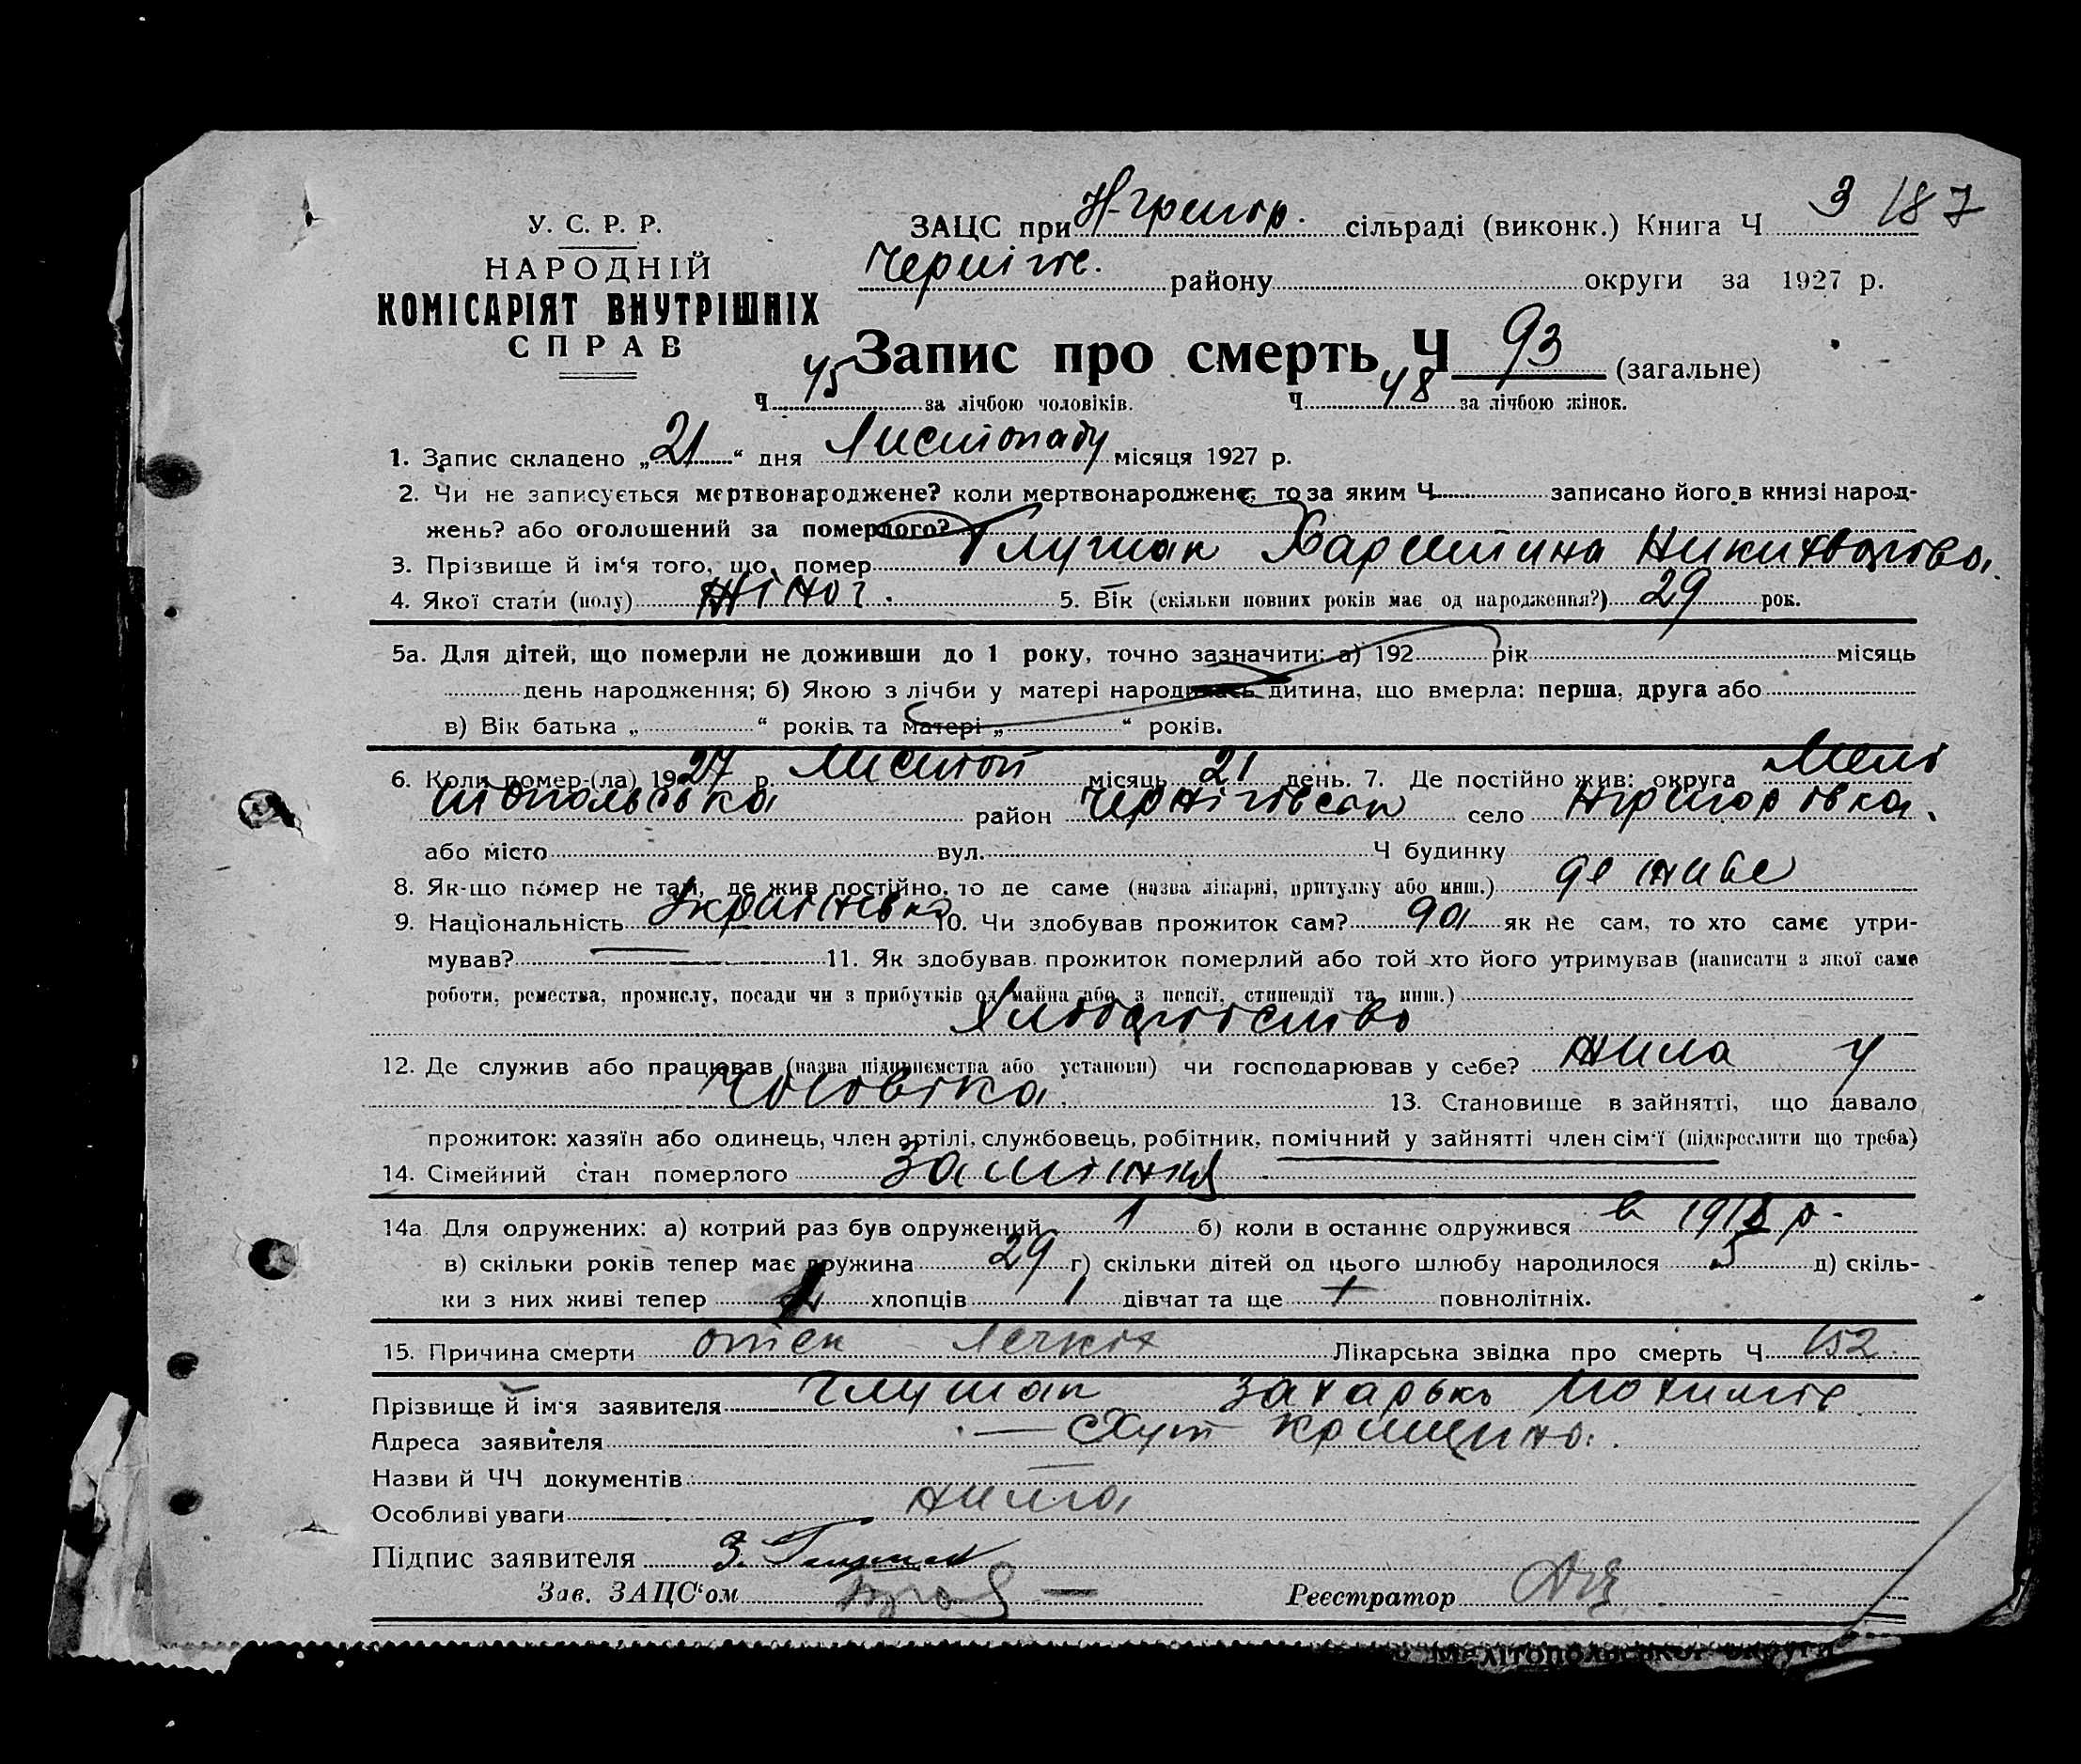 У. С. Р. Р.
НАРОДНІЙ
КОМІСАРІЯТ ВНУТРІШНІХ
СПРАВ
ЗАЦС при Н-Григор. сільраді (виконк.) Книга Ч 3 187
Чернігів. району округи за 1927 р.
Запис про смерть Ч 93 (загальне)
Ч 45 за лічбою чоловіків. Ч 48 за лічбою жінок.
1. Запис складено „21“ дня Листопаду місяця 1927 р.
2. Чи не записується мертвонароджене? коли мертвонароджене, то за яким Ч записано його в книзі народ-
жень? або оголошений за померлого?
3. Прізвище й ім‘я того, що помер Глушак Харитина
4. Якої стати (полу) Жіноч. 5. Вік (скільки повних років має од народження?) 29 рок.
5а. Для дітей, що померли не доживши до 1 року, точно зазначити: а) 192 рік місяць
день народження; б) Якою з лічби у матері народилась дитина, що вмерла: перша, друга або
в) Вік батька „ “ років та матері „ “ років.
6. Коли помер-(ла) 1927 р. Листоп місяць 21 день. 7. Де постійно жив: округа Мелі
топольська район Чернігівськ село Нгригорівка.
або місто вул. Ч будинку
8. Як-що помер не там, де жив постійно, то де саме (назва лікарні, притулку або инш.) де живе
9. Національність Українка 10. Чи здобував прожиток сам? да як не сам, то хто саме утри-
мував? 11. Як здобував прожиток померлий або той хто його утримував (написати з якої саме
роботи, ремества, промислу, посади чи з прибутків од майна або з пенсії, стипендії та инш.)
Хлібодробство
12. Де служив або працював (назва підприємства або установи) чи господарював у себе? Жила у
Чоловіка.
13. Становище в зайнятті, що давало
прожиток: хазяїн або одинець, член артілі, службовець, робітник, помічний у зайнятті член сім‘ї (підкреслити що треба)
14. Сімейний стан померлого Заміжня
14а Для одружених: а) котрий раз був одружений 1 б) коли в останнє одружився в 1918 р.
в) скільки років тепер має дружина 29 г) скільки дітей од цього шлюбу народилося 5 д) скіль-
ки з них живі тепер хлопців 1 дівчат та ще повнолітніх.
15. Причина смерти отек легких Лікарська звідка про смерть Ч 152
Прізвище й ім‘я заявителя Глушак Захарько
Адреса заявителя — Хут
Назви й ЧЧ документів —
Особливі уваги нима
Підпис заявителя З. Глушак
Зав. ЗАЦС‘ом Реєстратор
Мелітопольської округи